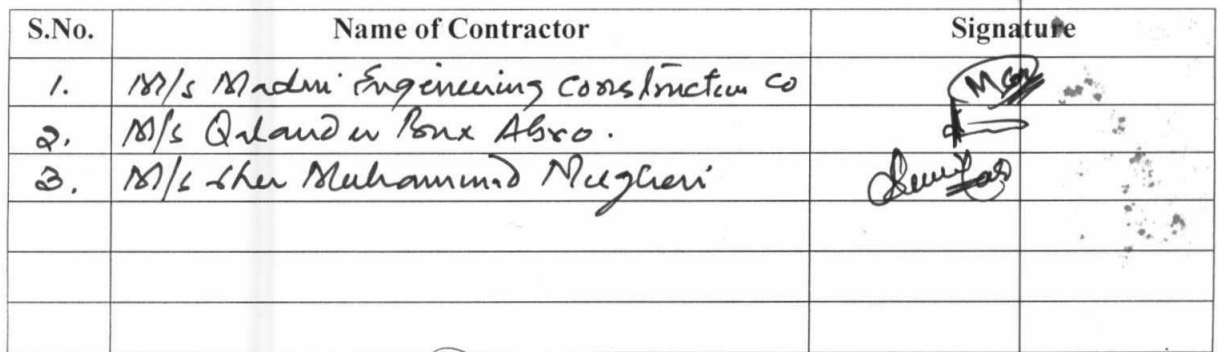 S.No. Name of Contractor Signature
1. M/s Madni Engineering Construction Co
2. M/s Qalander Bux Abro.
3. M/s Sher Muhammad Mugheri